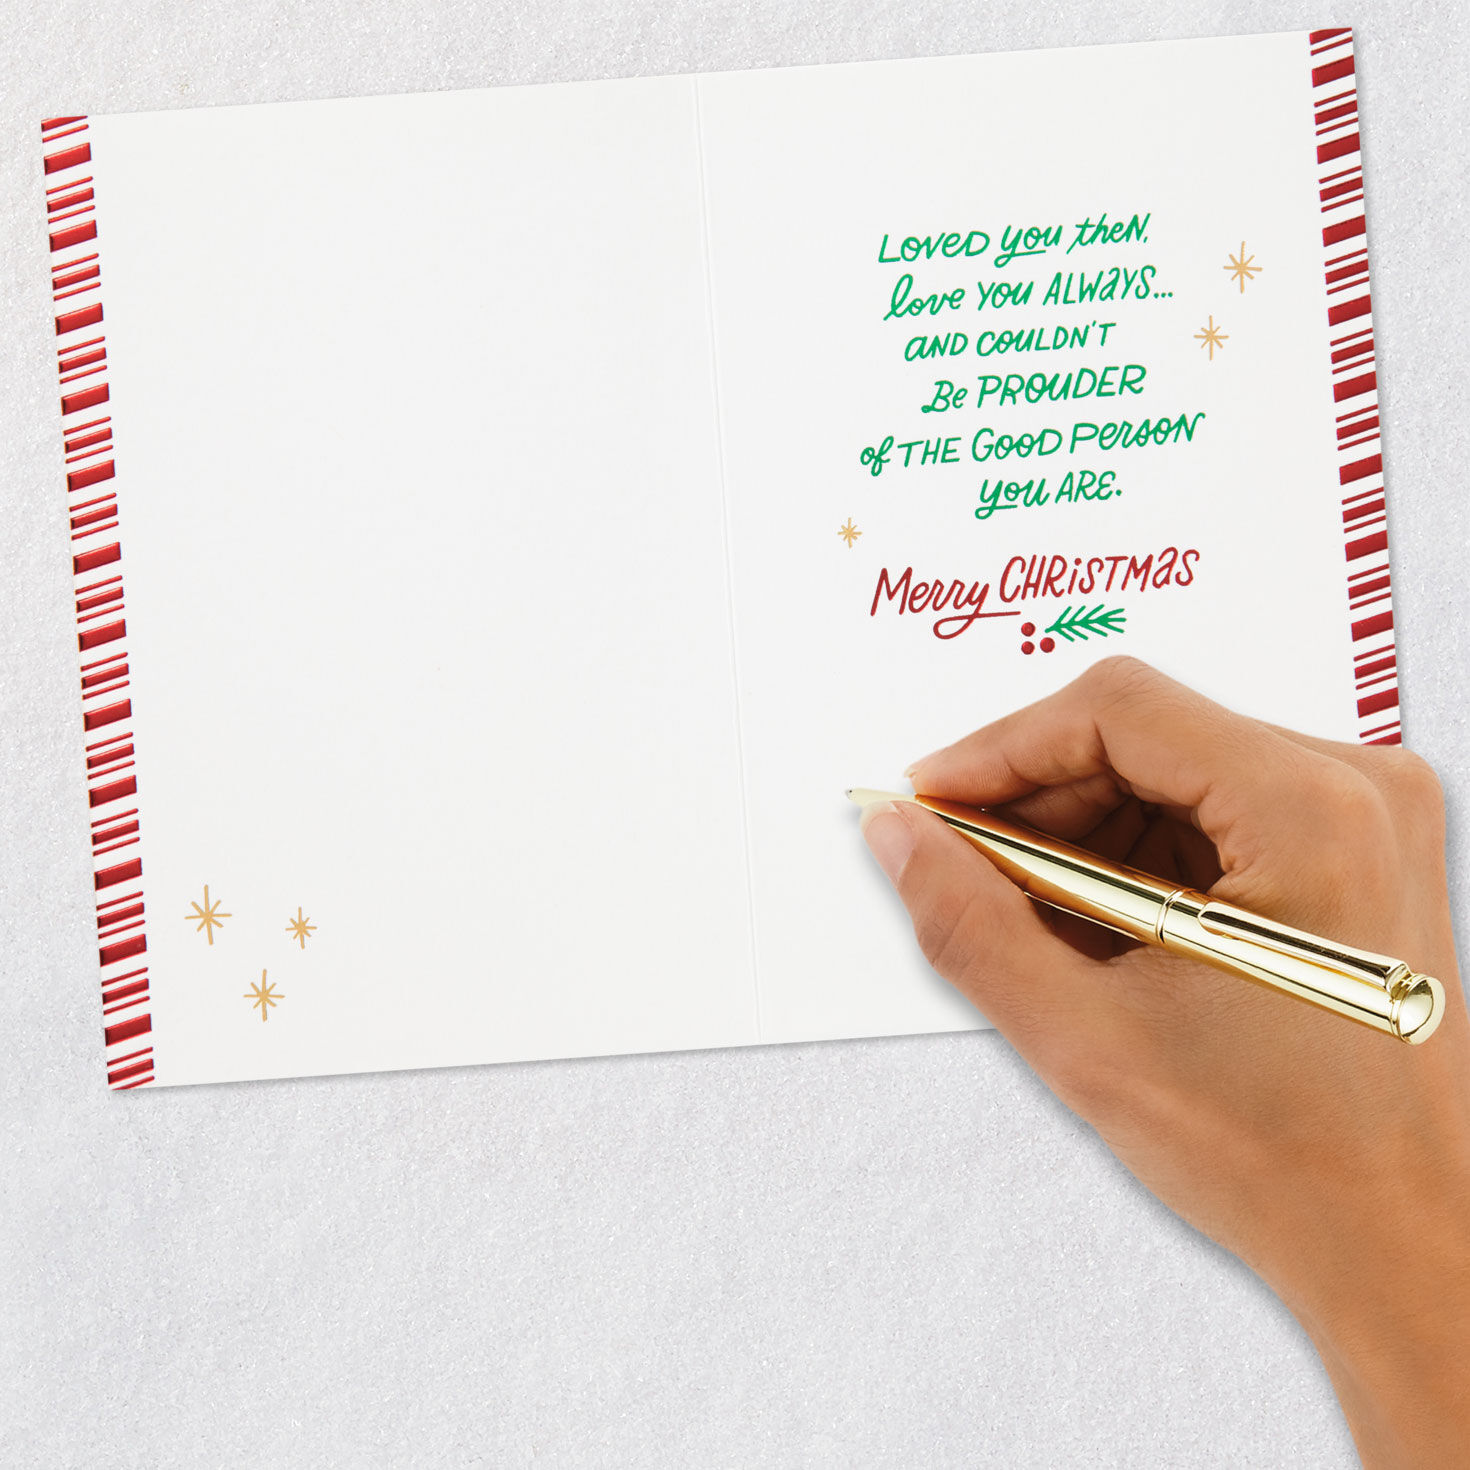 LOVED you theN,
love you ALWAYS...
AND COULDN'T
Be PROUDER
of THE GOOD PERSON
you ARE.
Merry CHRISTMAS